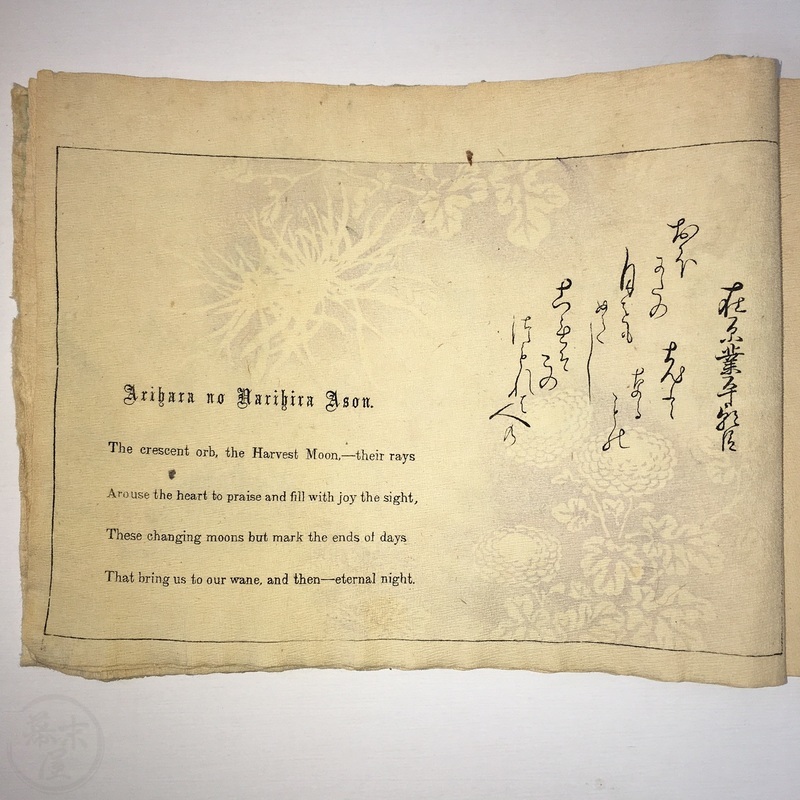 在原業平朝臣
おほ
かたは
月をも
めてし
これそ
この
つもれは
人の
なる
もの
Arihara no Narihira Ason.
The crescent orb, the Harvest Moon,—their rays
Arouse the heart to praise and fill with joy the sight,
These changing moons but mark the ends of days
That bring us to our wane, and then—eternal night.
幕末屋